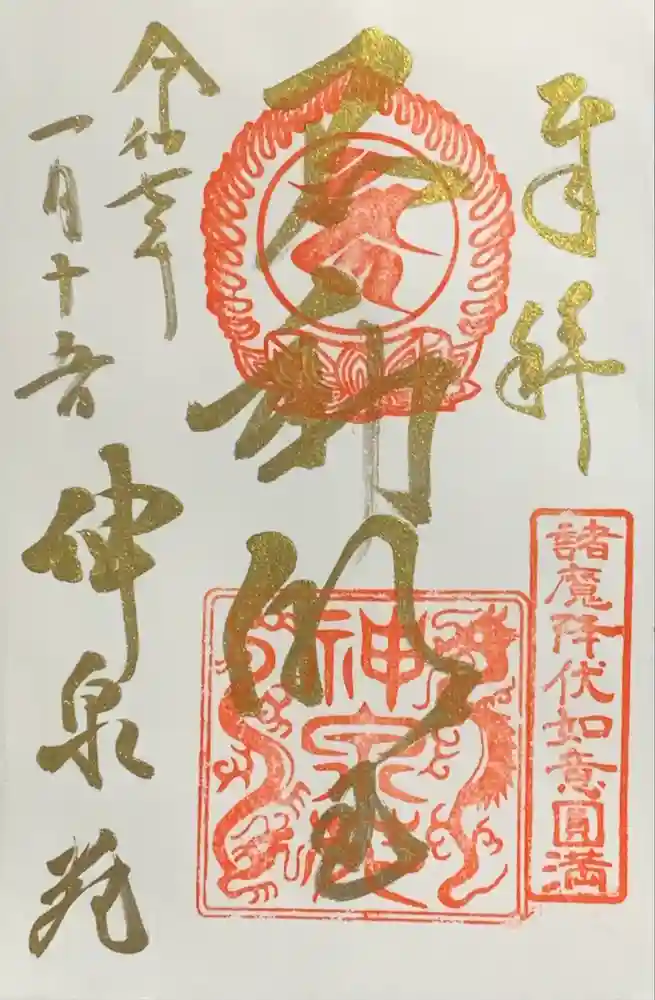 奉拝
諸魔降伏如意圓満
不動明王
神泉苑
令和七年
一月十五日
神泉苑